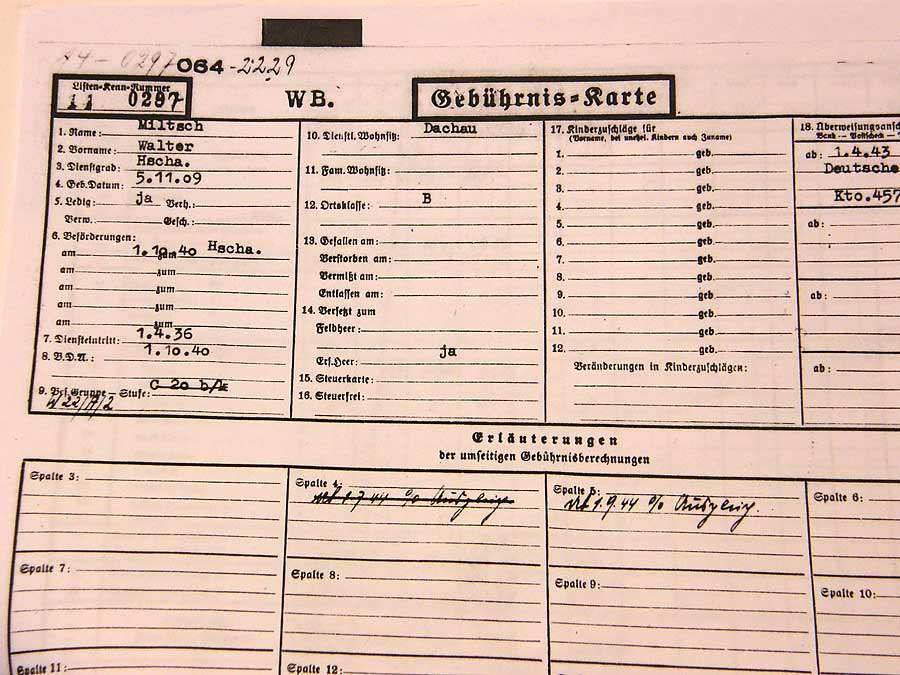 24-0297 064-2229
Listen-Kenn-Nummer
11 0297
WB.
Gebührnis=Karte
1. Name: Miltsch
2. Vorname: Walter
3. Dienstgrad: Hscha.
4. Geb.Datum: 5.11.09
5. Ledig: ja Verh.:
Verw. Gesch.:
6. Beförderungen:
am 1.10.40 zum Hscha.
am zum
am zum
am zum
am zum
7. Diensteintritt: 1.4.36
8. B.D.A.: 1.10.40
9. Bes.Gruppe - Stufe: C 20 b/k
W 22/A/2
10. Dienstl. Wohnsitz: Dachau
11. Fam. Wohnsitz:
12. Ortsklasse: B
13. Gefallen am:
Verstorben am:
Vermißt am:
Entlassen am:
14. Versetzt zum
Feldheer:
Ers.Heer: ja
15. Steuerkarte:
16. Steuerfrei:
17. Kinderzuschläge für
(Vorname, bei unehel. Kindern auch Zuname)
1. geb.
2. geb.
3. geb.
4. geb.
5. geb.
6. geb.
7. geb.
8. geb.
9. geb.
10. geb.
11. geb.
12. geb.
Veränderungen in Kinderzuschlägen:
18. Überweisungsansch
Bank - Postscheck -
ab: 1.4.43
Deutsche
Kto.457
ab:
ab:
ab:
Erläuterungen
der umseitigen Gebührnisberechnungen
Spalte 3:
Spalte 4: 1.7.44 % Ausgleich
Spalte 5: 1.9.44 % Ausgleich.
Spalte 6:
Spalte 7:
Spalte 8:
Spalte 9:
Spalte 10:
Spalte 11:
Spalte 12: